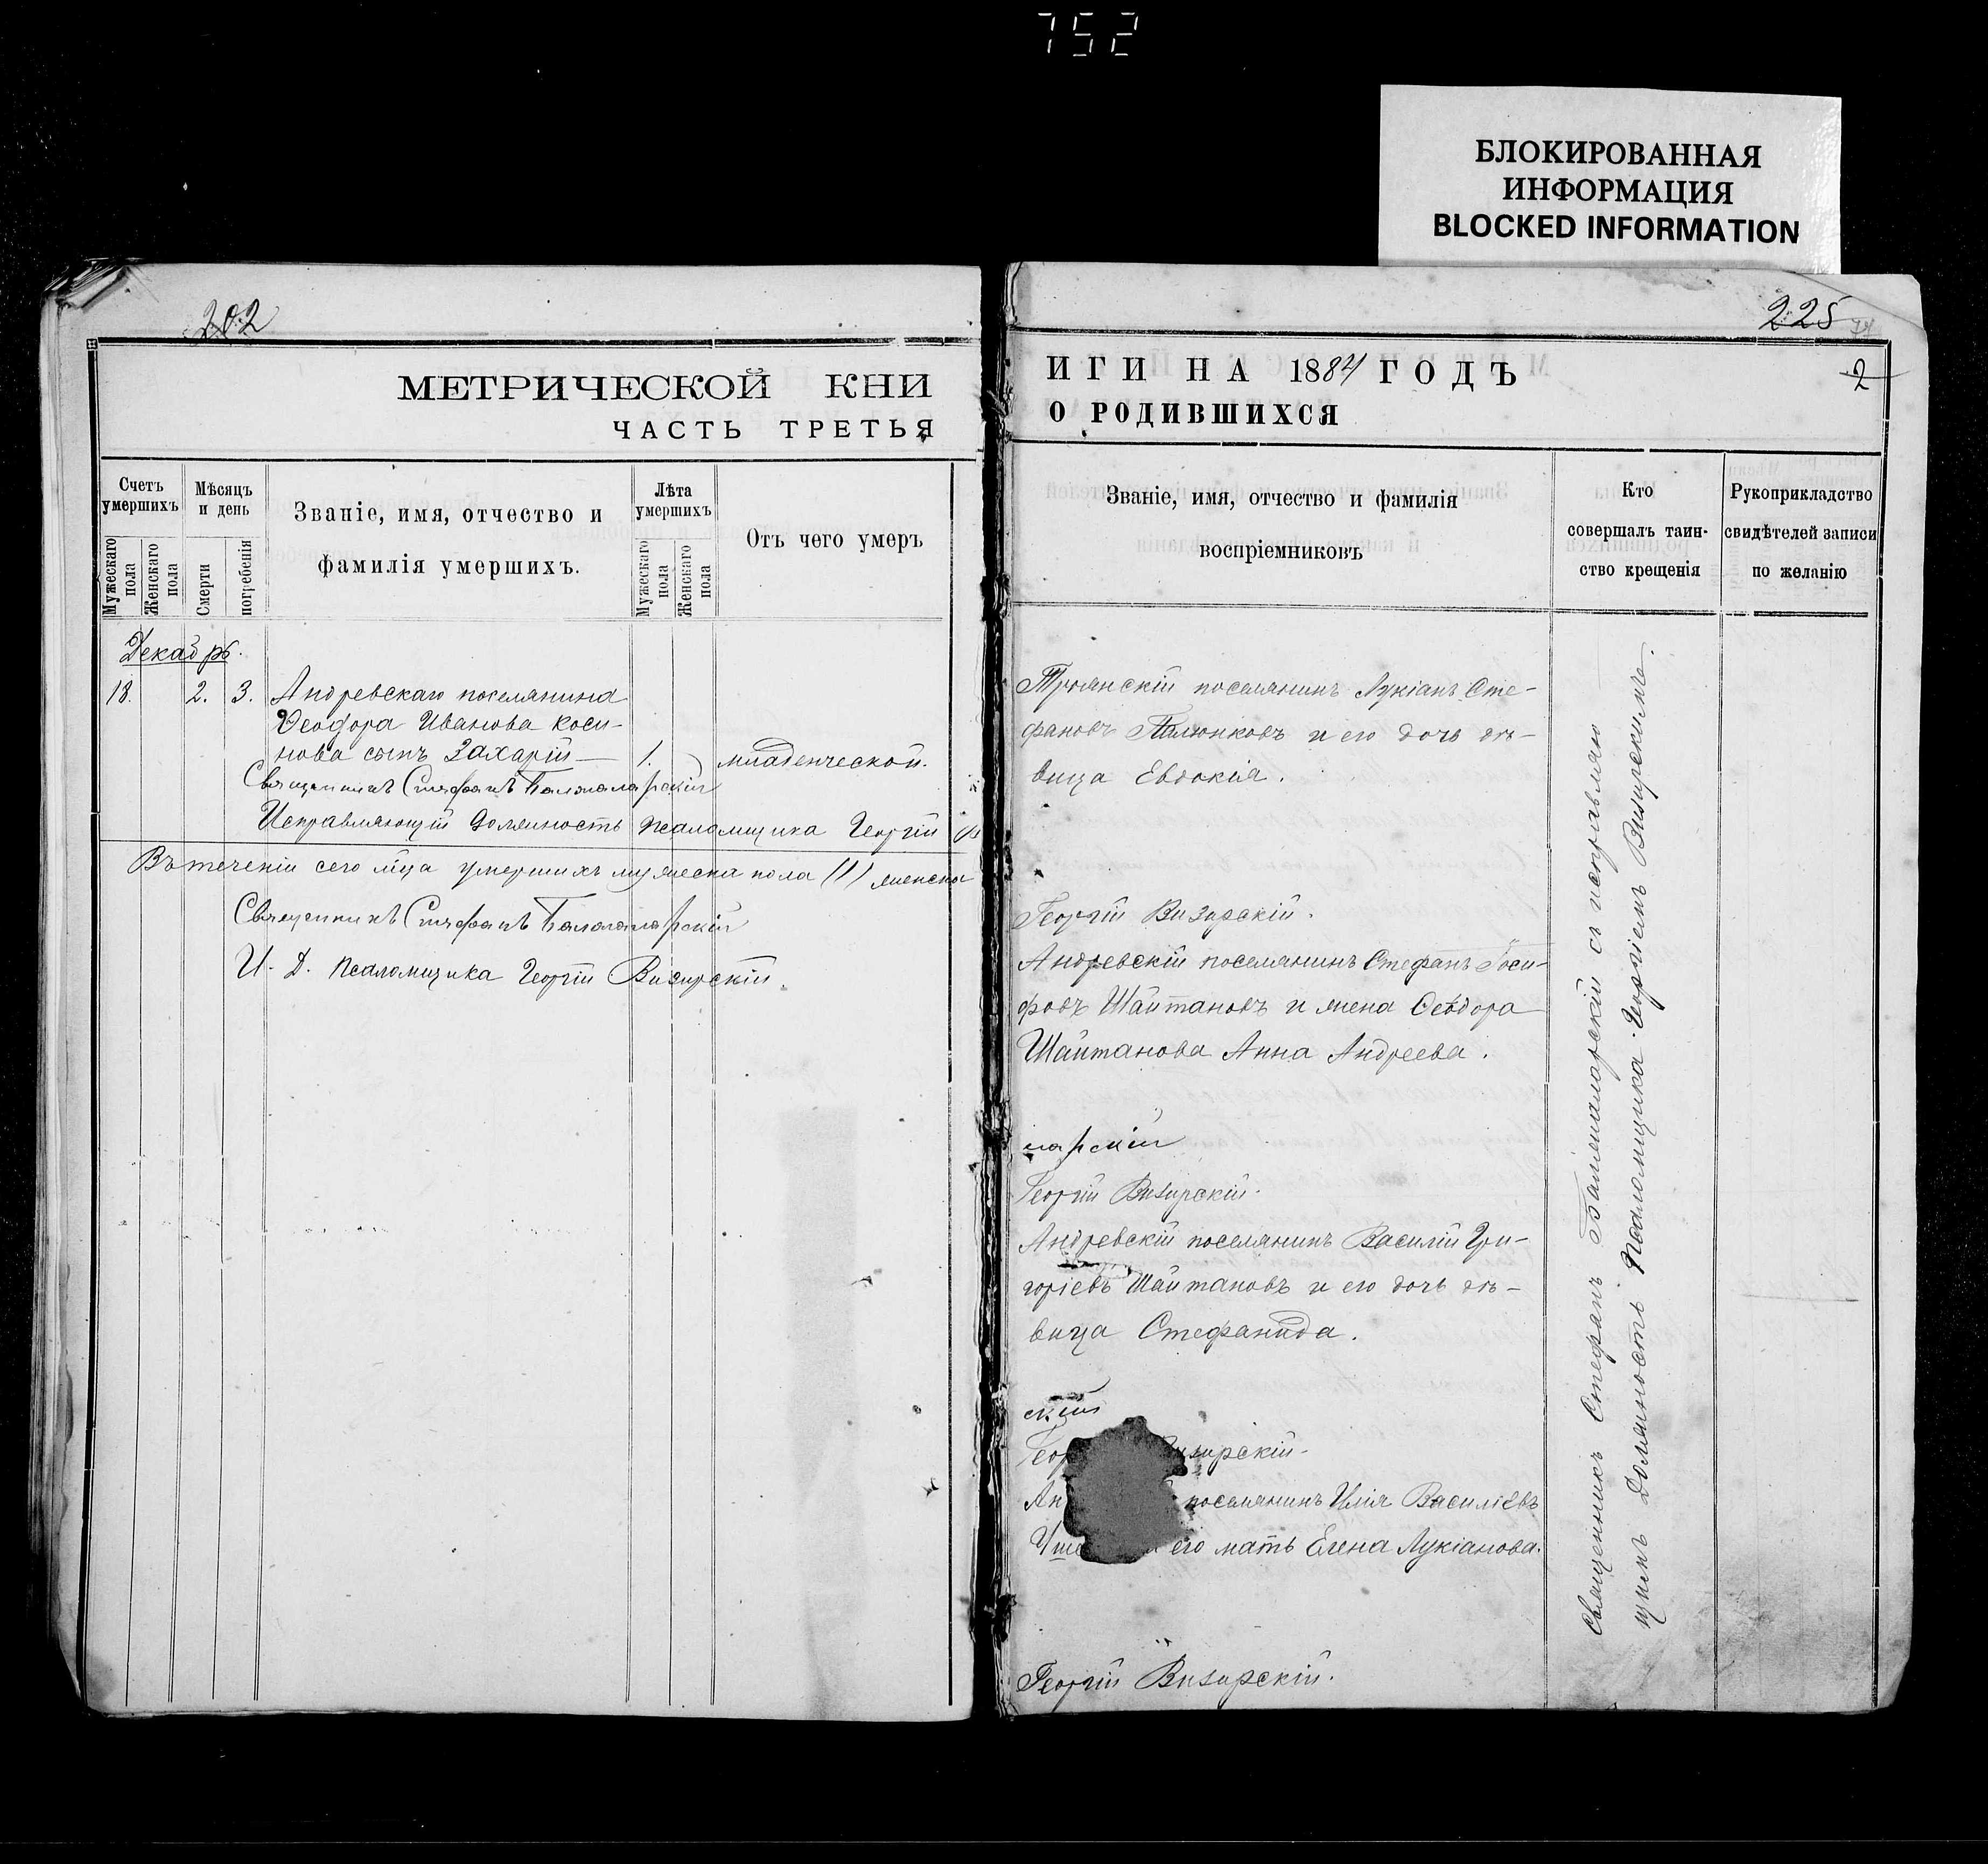 752
БЛОКИРОВАННАЯ
ИНФОРМАЦИЯ
BLOCKED INFORMATION
202
МЕТРИЧЕСКОЙ КНИ
ЧАСТЬ ТРЕТЬЯ
Счетъ умершихъ
Мужескаго пола
Женскаго пола
Мѣсяцъ и день
Смерти
погребенія
Званіе, имя, отчество и
фамилія умершихъ.
Лѣта умершихъ
Мужескаго пола
Женскаго пола
Отъ чего умеръ
Декабрь.
18. 2. 3. Андревскаго поселянина
Ѳеодора Иванова Коси-
нова сынъ Захарій — 1. младенческой.
Священникъ Стефанъ
Исправляющій должность Псаломщика Георгій
Въ теченіи сего м҃ца умершихъ мужеска пола (1) женска
Священникъ Стефанъ
И. Д. Псаломщика Георгій Визирскій.
225
2
ИГИ НА 1884 ГОДЪ
О РОДИВШИХСЯ
Званіе, имя, отчество и фамилія
воспріемниковъ
Кто
совершалъ таин-
ство крещенія
Рукоприкладство
свидѣтелей записи
по желанію
Троянскій поселянинъ Лукіанъ Сте-
фановъ и его дочь дѣ-
вица Евдокія.
Георгій Визирскій.
Андревскій поселянинъ Стефанъ Іоси-
фовъ Шайтановъ и жена Ѳеодора
Шайтанова Анна Андреева.
марскій
Георгій Визирскій.
Андревскій поселянинъ Василій Гри-
горіевъ Шайтановъ и его дочь дѣ-
вица Стефанида.
скій
Геор изирскій.
Ан поселянинъ Илія Василіевъ
его мать Елена Лукіанова.
Георгій Визирскій.
Священникъ Стефанъ Баламамарскій съ исправляю
щимъ Должность Псаломщика Георгіемъ Визирскимъ.